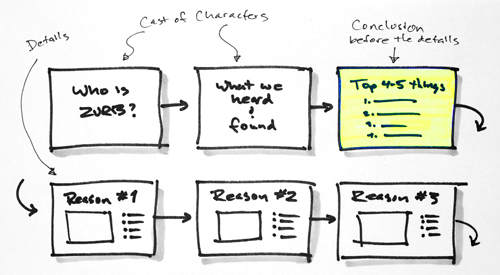 Details
Cast of Characters
Conclusion
before the details
Who is
ZURB?
What we
heard
&
found
Top 4-5 things
1.
2.
3.
4.
Reason #1
Reason #2
Reason #3